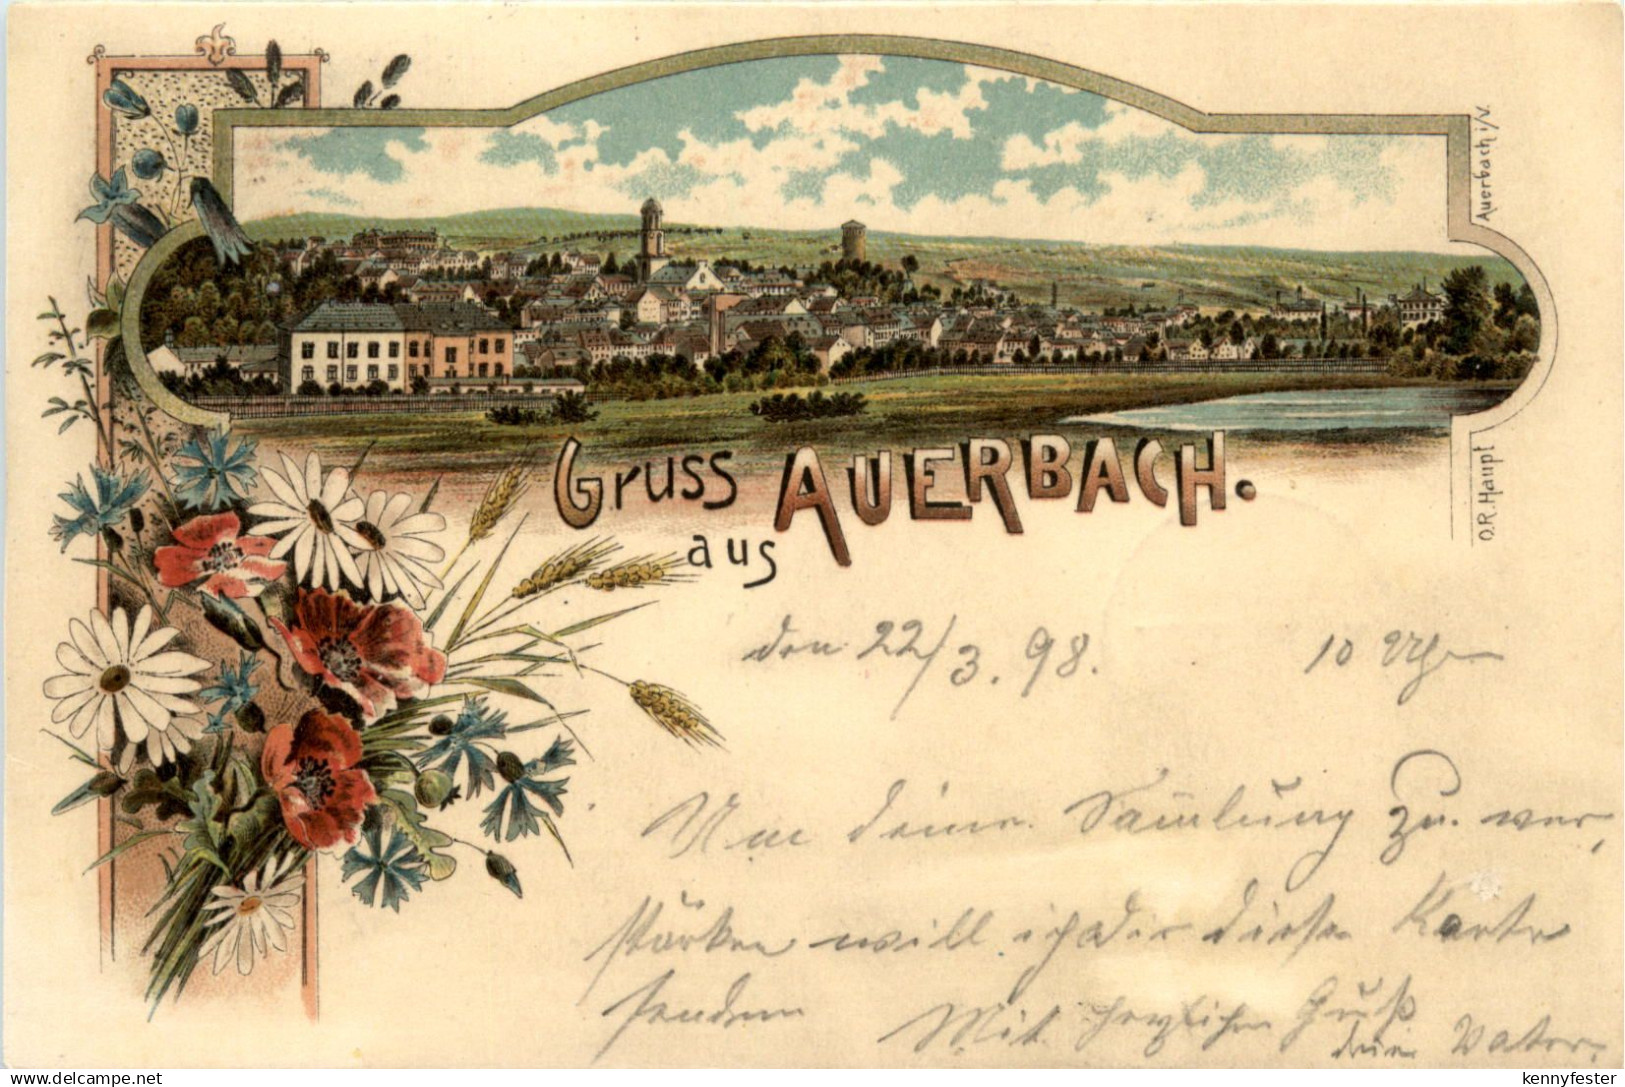 Gruss
aus
AUERBACH.
Auerbach i/V.
O.R. Haupt
den 22/3. 98. 10 Uhr
Um deine Samlung zu ver,
stärken will ich dir diese Karte
senden Mit herzlichen Gruß
dein Vater.
Delcampe.net
kennyfester